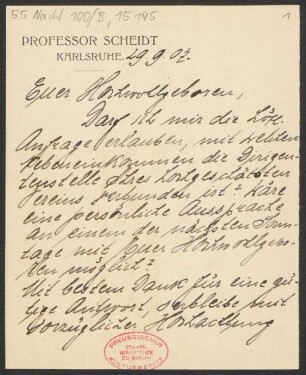 55 Nachl 100/B, 15145
1
PROFESSOR SCHEIDT
KARLSRUHE. 29.9.07.
Euer Hochwollgeboren,
Darf ich mir die höfl.
Anfrage erlauben, mit welchen
Nebeneinkommen die Dirigen-
tenstelle Ihres hochgeschätzten
Vereins verbunden ist? Wäre
eine persönliche Aussprache
an einem der nächsten Sonn-
tage mit Euer Hochwollgebo-
ren möglich?
Mit bestem Dank für eine gü-
tige Antwort, verbleibe mit
vorzüglicher Hochachtung
PREUSSISCHER
STAATS-
BIBLIOTHEK
ZU BERLIN
KULTURBESITZ